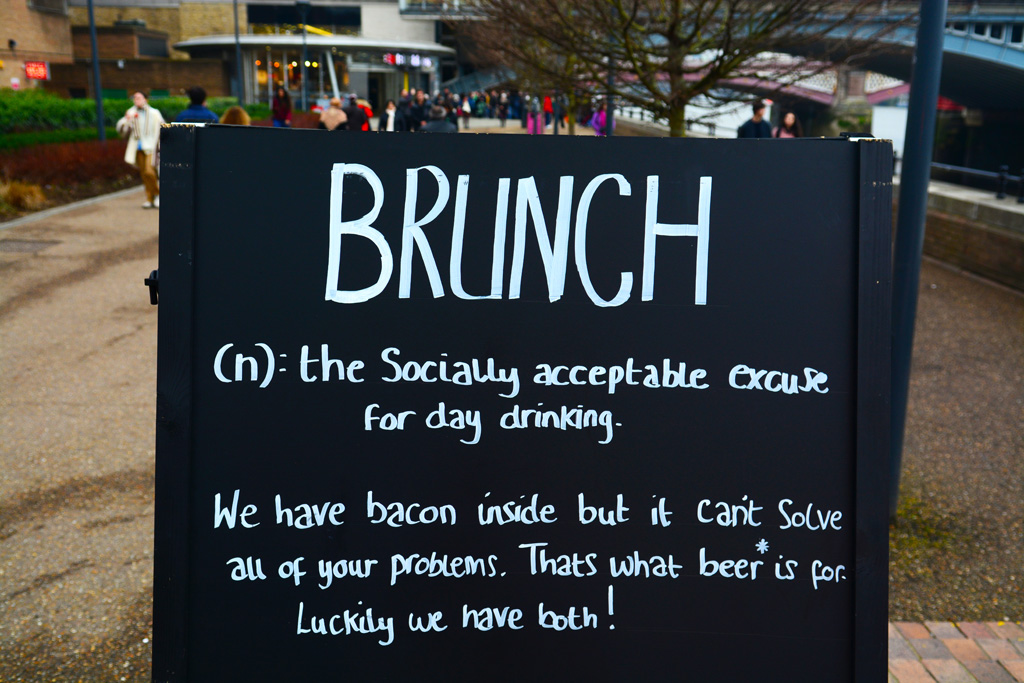 BRUNCH
(n): the Socially acceptable excuse
for day drinking.
We have bacon inside but it can't Solve
all of your problems. Thats what beer* is for.
Luckily we have both!